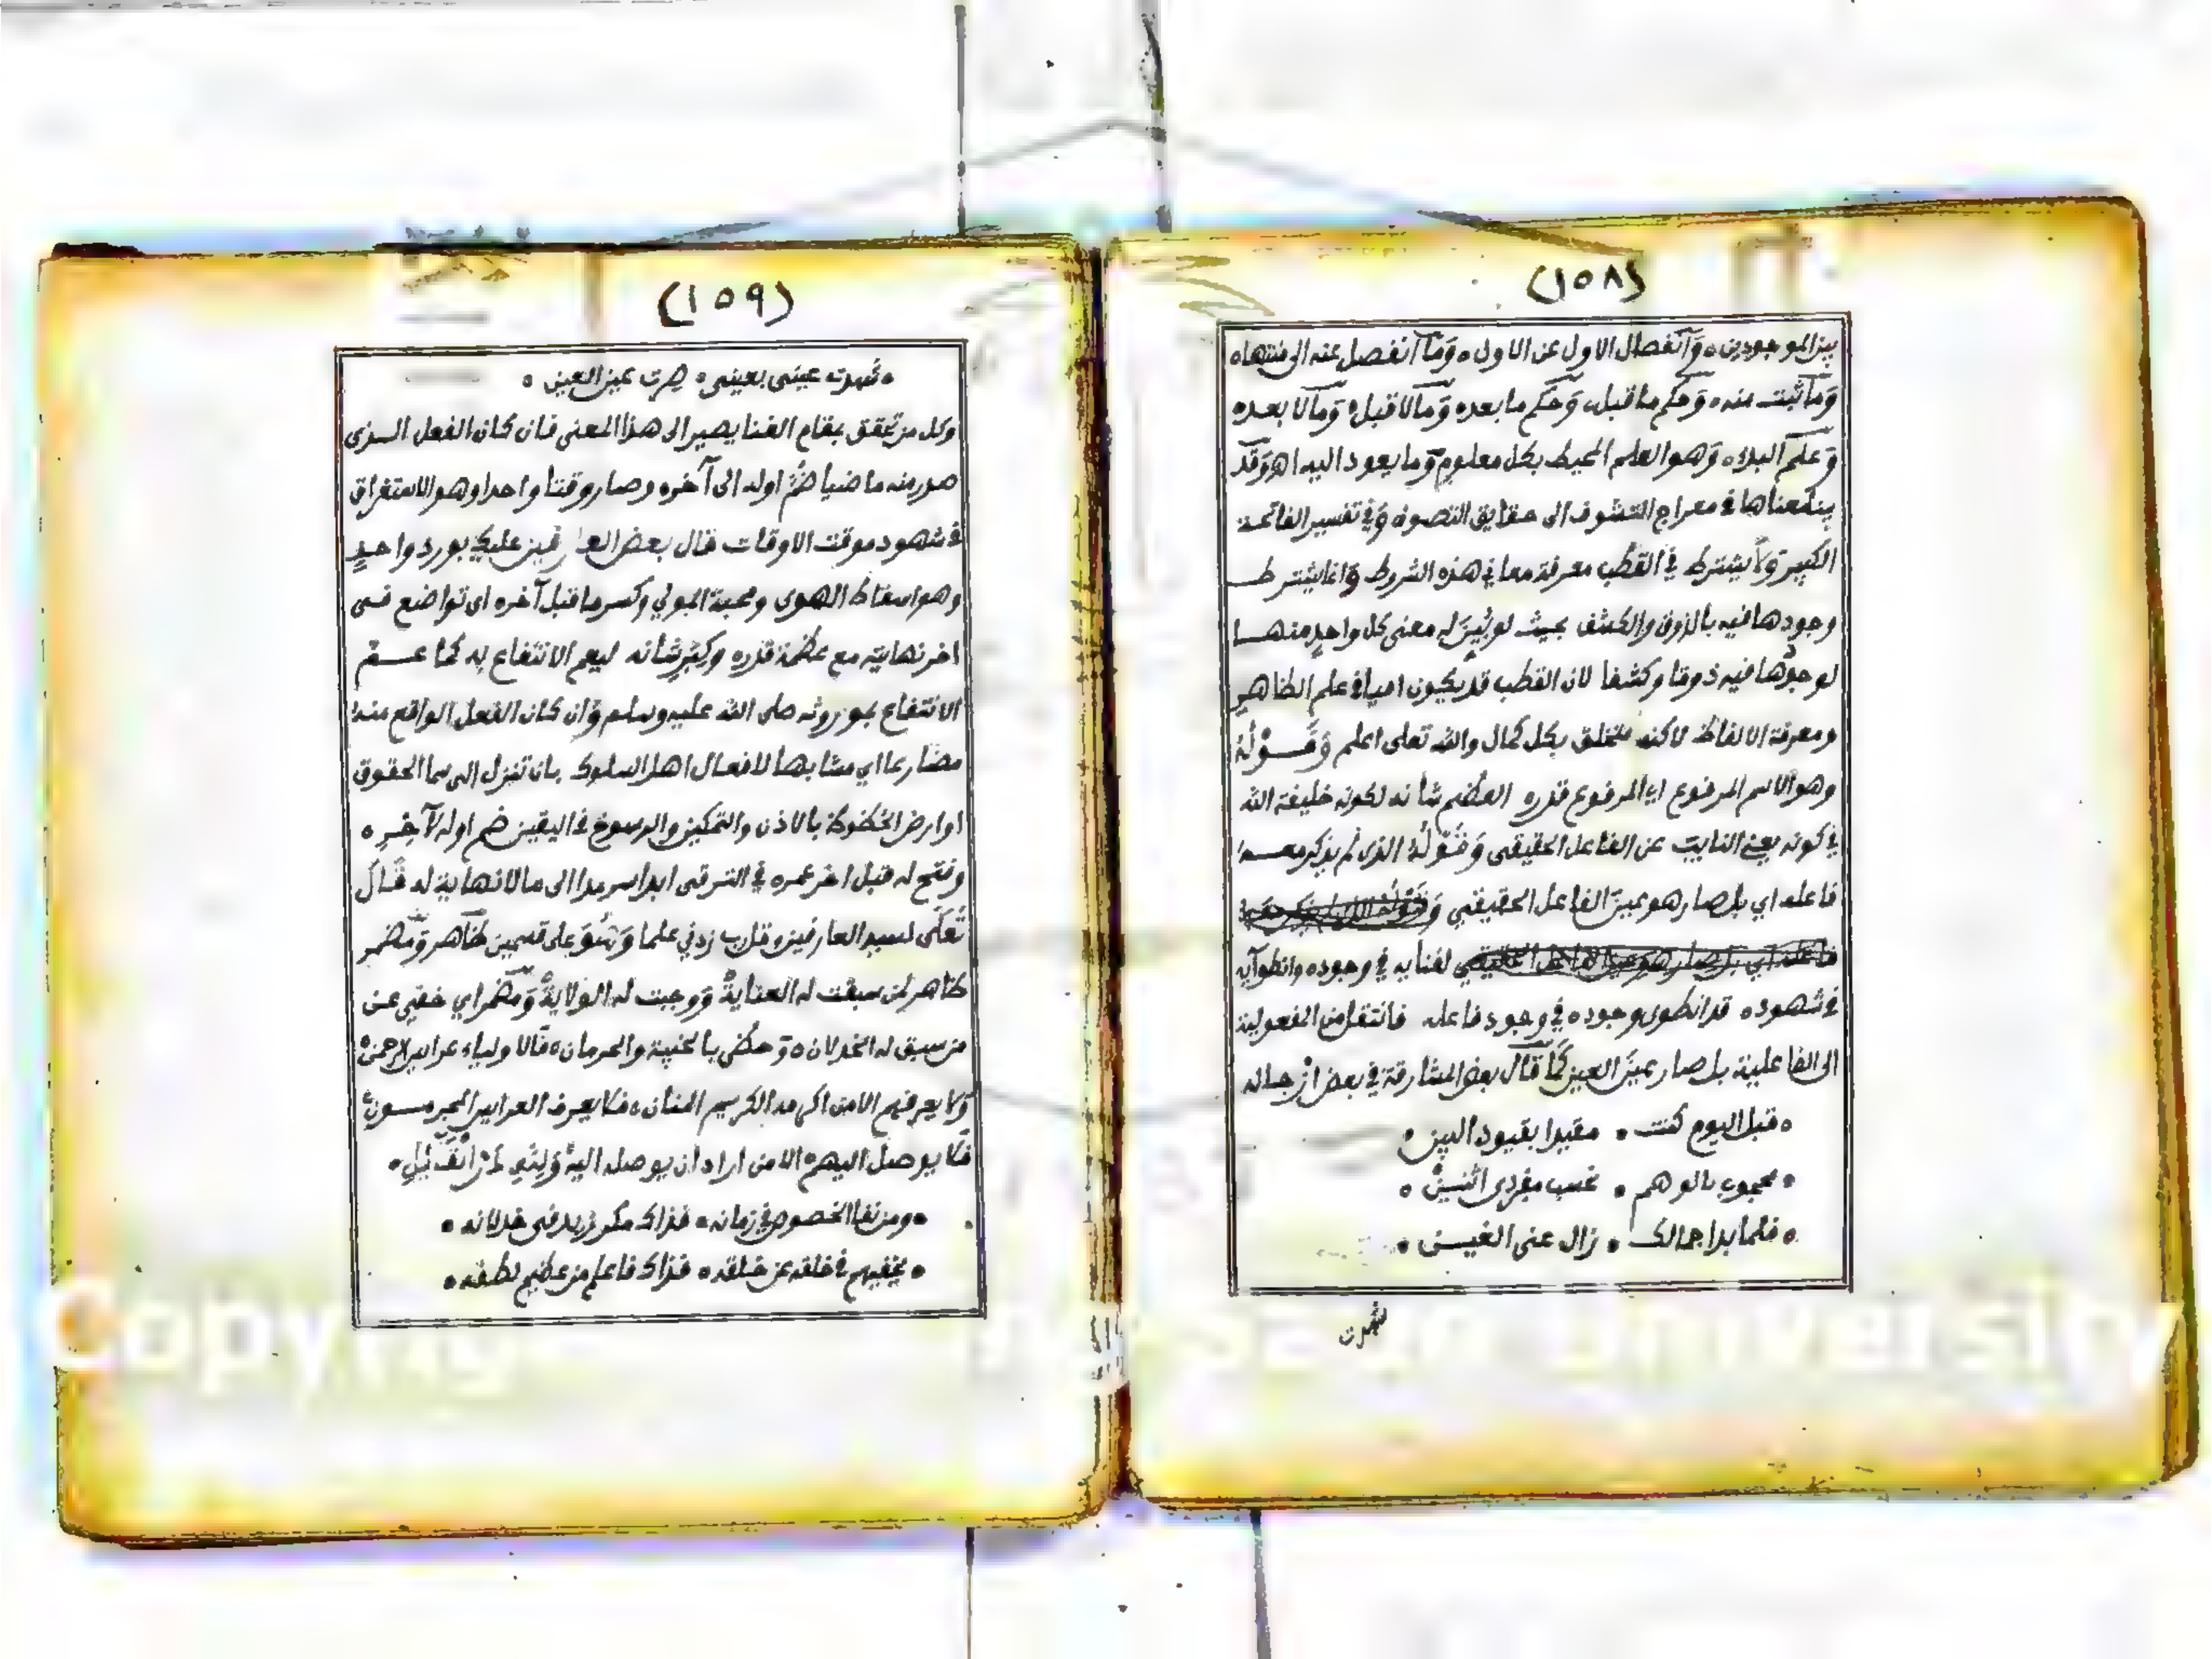 (١٥٨)
بين الموجودين ه وَانفصال الاول عن الاول ه وَما انفصل عنه الى منتهاه
وَما ثبت منه ه وَحكم ما قبل وَحكم ما بعده وَما لا قبل وَما لا بعده
وَعلم البدء ه وَهو العلم المحيط بكل معلوم وَما يعود اليه اهـ وَقد
بينا معناها في معراج التشوف الى حقايق التصوف وَفي تفسير الفاتحة
الكبير وَلا يشترط في القطب معرفة معاني هذه الشروط وَانما يشترط
وجودها فيه بالذوق والكشف بحيث لو بُيّنَ له معنى كل واحدٍ منها
لوجدها فيه ذوقا وكشفا لان القطب قد يكون اميا في علم الظاهر
ومعرفة الالفاظ لاكنه متخلق بكل كمال والله تعلى اعلم وَقَوْلُهُ
وهو الاسم المرفوع اي المرفوع قدره العظيم شانه لكونه خليفة الله
في كونه يعني النايب عن الفاعل الحقيقي وَقَوْلُهُ الذي لم يذكر معه
فاعله اي بل صار هو عينَ الفاعل الحقيقي وَقَوْلُهُ الذي لم يذكر معه
فاعله اي بل صار هو عين الفاعل الحقيقي لفنايه في وجوده وانطوآيه
في شهوده قد انطوى وجوده في وجود فاعله فانتقل من المفعولية
الى الفاعلية بل صار عينَ العين كَما قال بعض المشارقة في بعض ازجاله
ه قبل اليوم كنت ه مقيدا بقيود البين ه
ه محجوب بالوهم ه نحسب مفردي اثنين ه
ه فلما بدا جمالك ه زال عني الغين ه
شهدت
(١٥٩)
ه شهدت عيني بعيني ه صرت عين العين ه
وكل من تحقق بمقام الفنا يصير الى هذا المعنى فان كان الفعل الذي
صدر منه ماضيا ضُمَّ اوله الى آخره وصار وقتا واحدا وهو الاستغراق
في شهود موقت الاوقات قال بعض العارفين عليك بورد واحدٍ
وهو اسقاط الهوى ومحبة المولي وكسر ما قبل آخره اى تواضع في
اخر نهايته مع عظمة قدره وكِبَرِ شانه ليعم الانتفاع به كما عم
الانتفاع بموروثه صلى الله عليه وسلم وَان كان الفعل الواقع منه
مضارعا اي مشابها لافعال اهل السلوك بان تنزل الى سما الحقوق
او ارض الحظوظ بالاذن والتمكين والرسوخ في اليقين ضم اوله لآخِرِه
وفتح له قبل اخر عمره في الترقي ابدا سرمدا الى ما لا نهاية له قَالَ
تَعَلَى لسيد العارفين وقل رب زدني علما وَهُوَ على قسمين ظاهر وَمضمر
ظاهر لمن سبقت له العناية وَوجبت له الولاية وَمضمر اي خفي عن
من سبق له الخذلان ه وَحظي بالخيبة والحرمان ه فالاولياء عرايس الرحمن
وَلا يعرفهم الا من اكرمه الكريم المنان ه فلا يعرف العرايس المجرمون
فلا يوصل اليهم الا من اراد ان يوصله اليه
ه ومن نفا الخصوص في زمانه ه فذاك مكر زيد في خذلانه ه
ه يخفيهم في خلقه عن خلقه ه فذاك فاعلم من عظيم لطفه ه